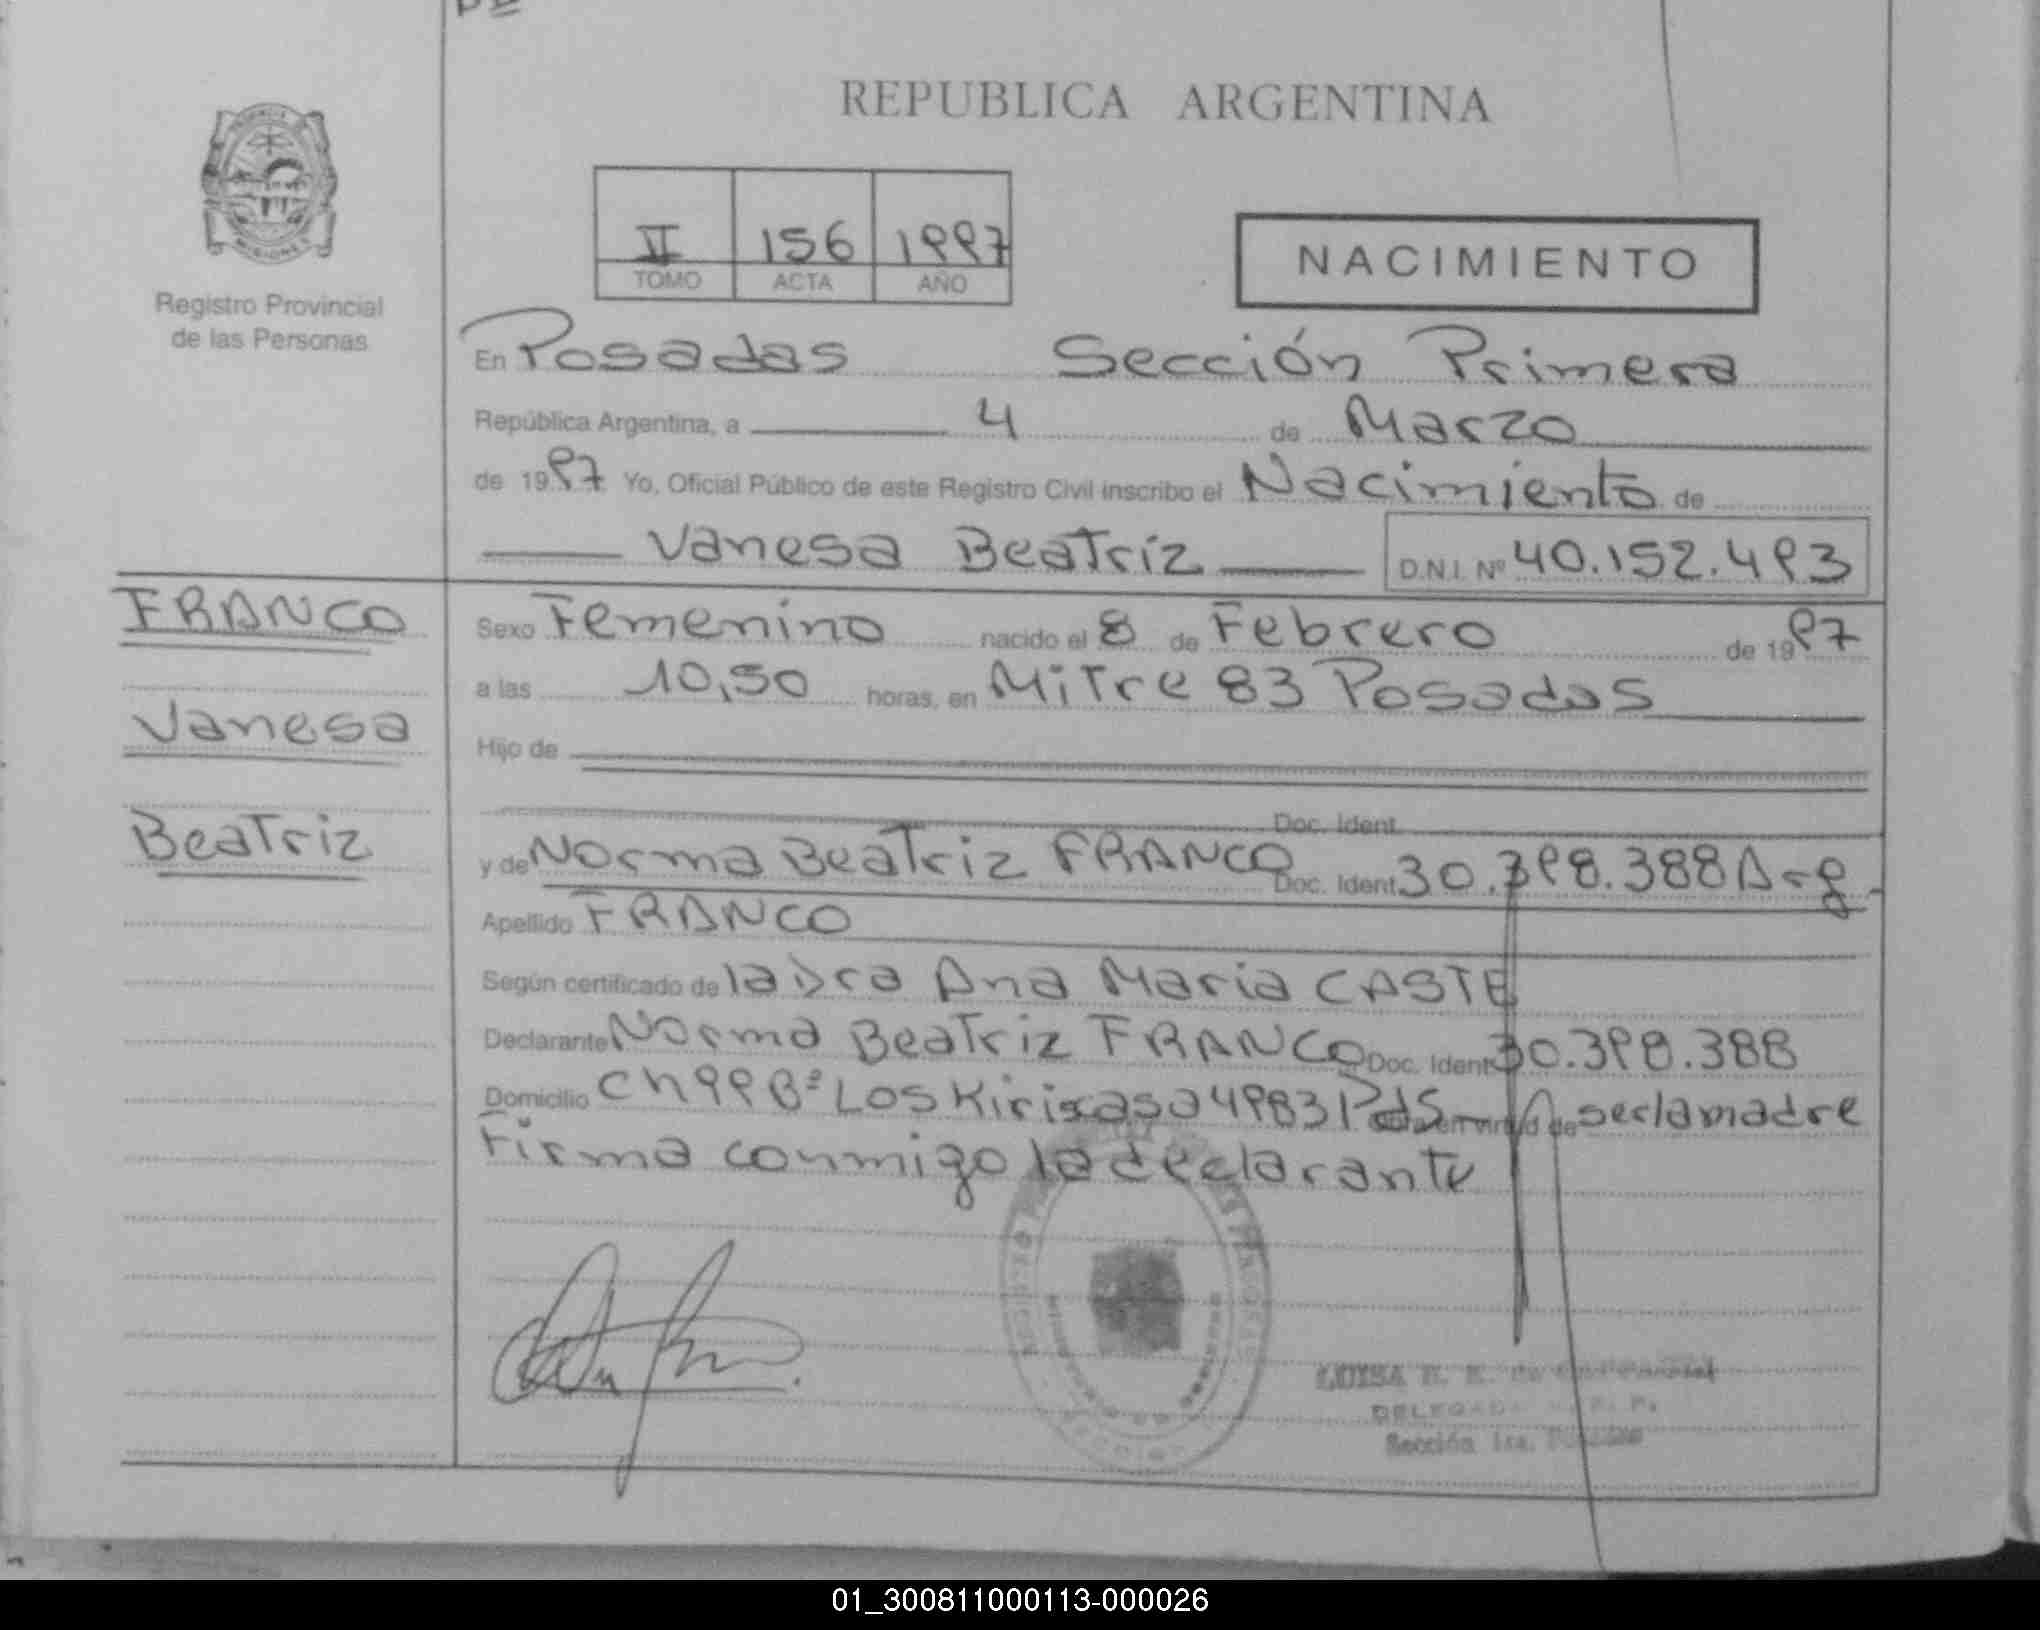 REPUBLICA ARGENTINA
MISIONES
Registro Provincial
de las Personas
II 156 1997
TOMO ACTA AÑO
NACIMIENTO
En Posadas Sección Primera
República Argentina, a 4 de Marzo
de 1997 Yo, Oficial Público de este Registro Civil inscribo el Nacimiento de
Vanesa Beatriz D.N.I. Nº 40.152.493
FRANCO
Vanesa
Beatriz
Sexo Femenino nacido el 8 de Febrero de 1997
a las 10,50 horas, en Mitre 83 Posadas
Hijo de
Doc. Ident.
y de Norma Beatriz FRANCO Doc. Ident. 30.398.388 Arg.
Apellido FRANCO
Según certificado de la Dra Ana Maria CASTE
Declarante Norma Beatriz FRANCO Doc. Ident. 30.398.388
Domicilio Ch 99 Bº Los Kiri casa 4983 Pds de ser la madre
Firma conmigo la declarante
LUISA
DELEGADA
Sección 1ra.
01_300811000113-000026